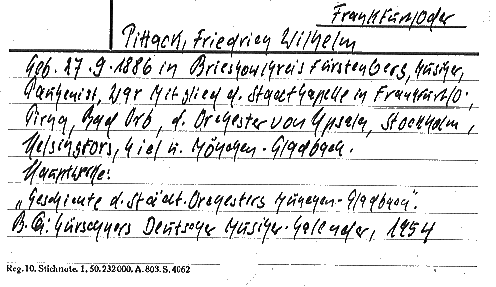 Frankfurt/Oder
Pittack, Friedrich Wilhelm
Geb. 27.9.1886 in Brieskow/Kreis Fürstenberg, Musiker,
Paukenist, War Mitglied d. Stadtkapelle in Frankfurt/O.
Pirna, Bad Orb, d. Orchester von Upsala, Stockholm,
Helsingfors, Kiel u. München-Gladbach.
Hauptwerke:
„Geschichte d. Städt. Orchesters München-Gladbach".
B.Qi: Kürschners Deutscher Musiker-Kalender, 1954
Reg. 10. Stichnote. 1, 50. 232 000. A. 803. S. 4062